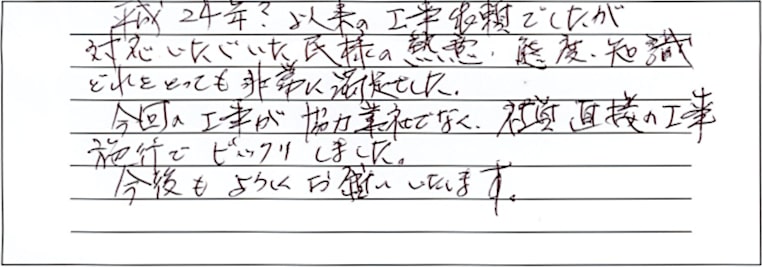 平成24年?以来の工事依頼でしたが
対応いただいた民様の熱意、態度、知識
どれをとっても非常に満足でした。
今回の工事が協力業社でなく、社員直接の工事
施行でビックリしました。
今後もよろしくお願いいたします。